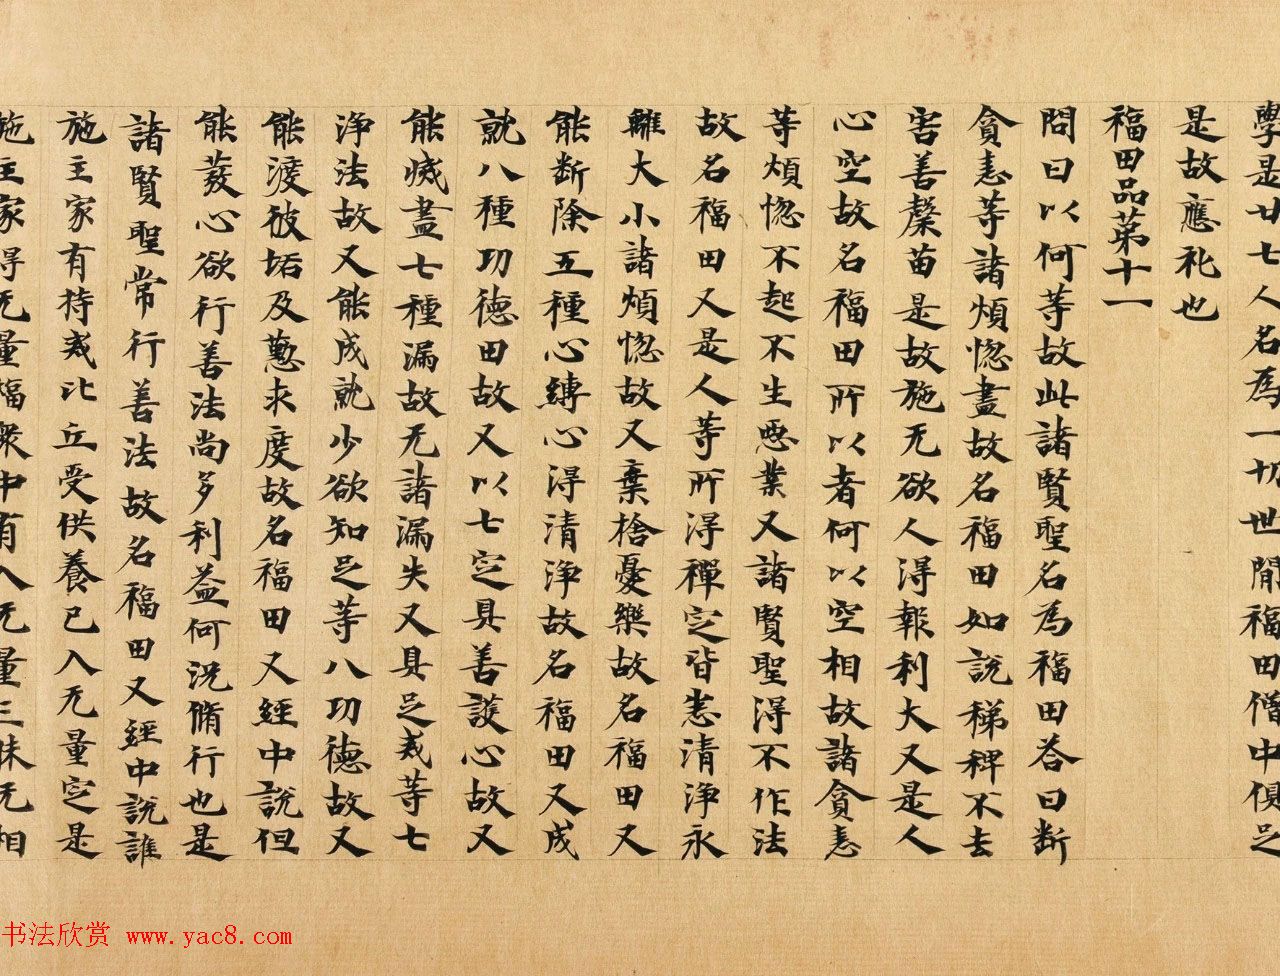 學是廿七人名為一切世閒福田僧中俱足
是故應礼也
福田品苐十一
問曰以何等故此諸賢聖名為福田荅曰断
貪恚等諸煩惚盡故名福田如說稊稗不去
害善糓苗是故施无欲人淂報利大又是人
心空故名福田所以者何以空相故諸貪恚
等煩惚不起不生惡業又諸賢聖淂不作法
故名福田又是人等所淂禪定皆悉清淨永
離大小諸煩惚故又棄捨憂樂故名福田又
能断除五種心縛心淂清淨故名福田又成
就八種功德田故又以七定具善護心故又
能滅盡七種漏故无諸漏失又具足戒等七
淨法故又能成就少欲知足等八功德故又
能渡彼垢及懃求度故名福田又經中說但
能發心欲行善法尚多利益何況脩行也是
諸賢聖常行善法故名福田又經中說誰
施主家有持戒比丘受供養已入无量定是
施主家得无量福衆中有入无量三昧无相
书法欣赏 www.yac8.com